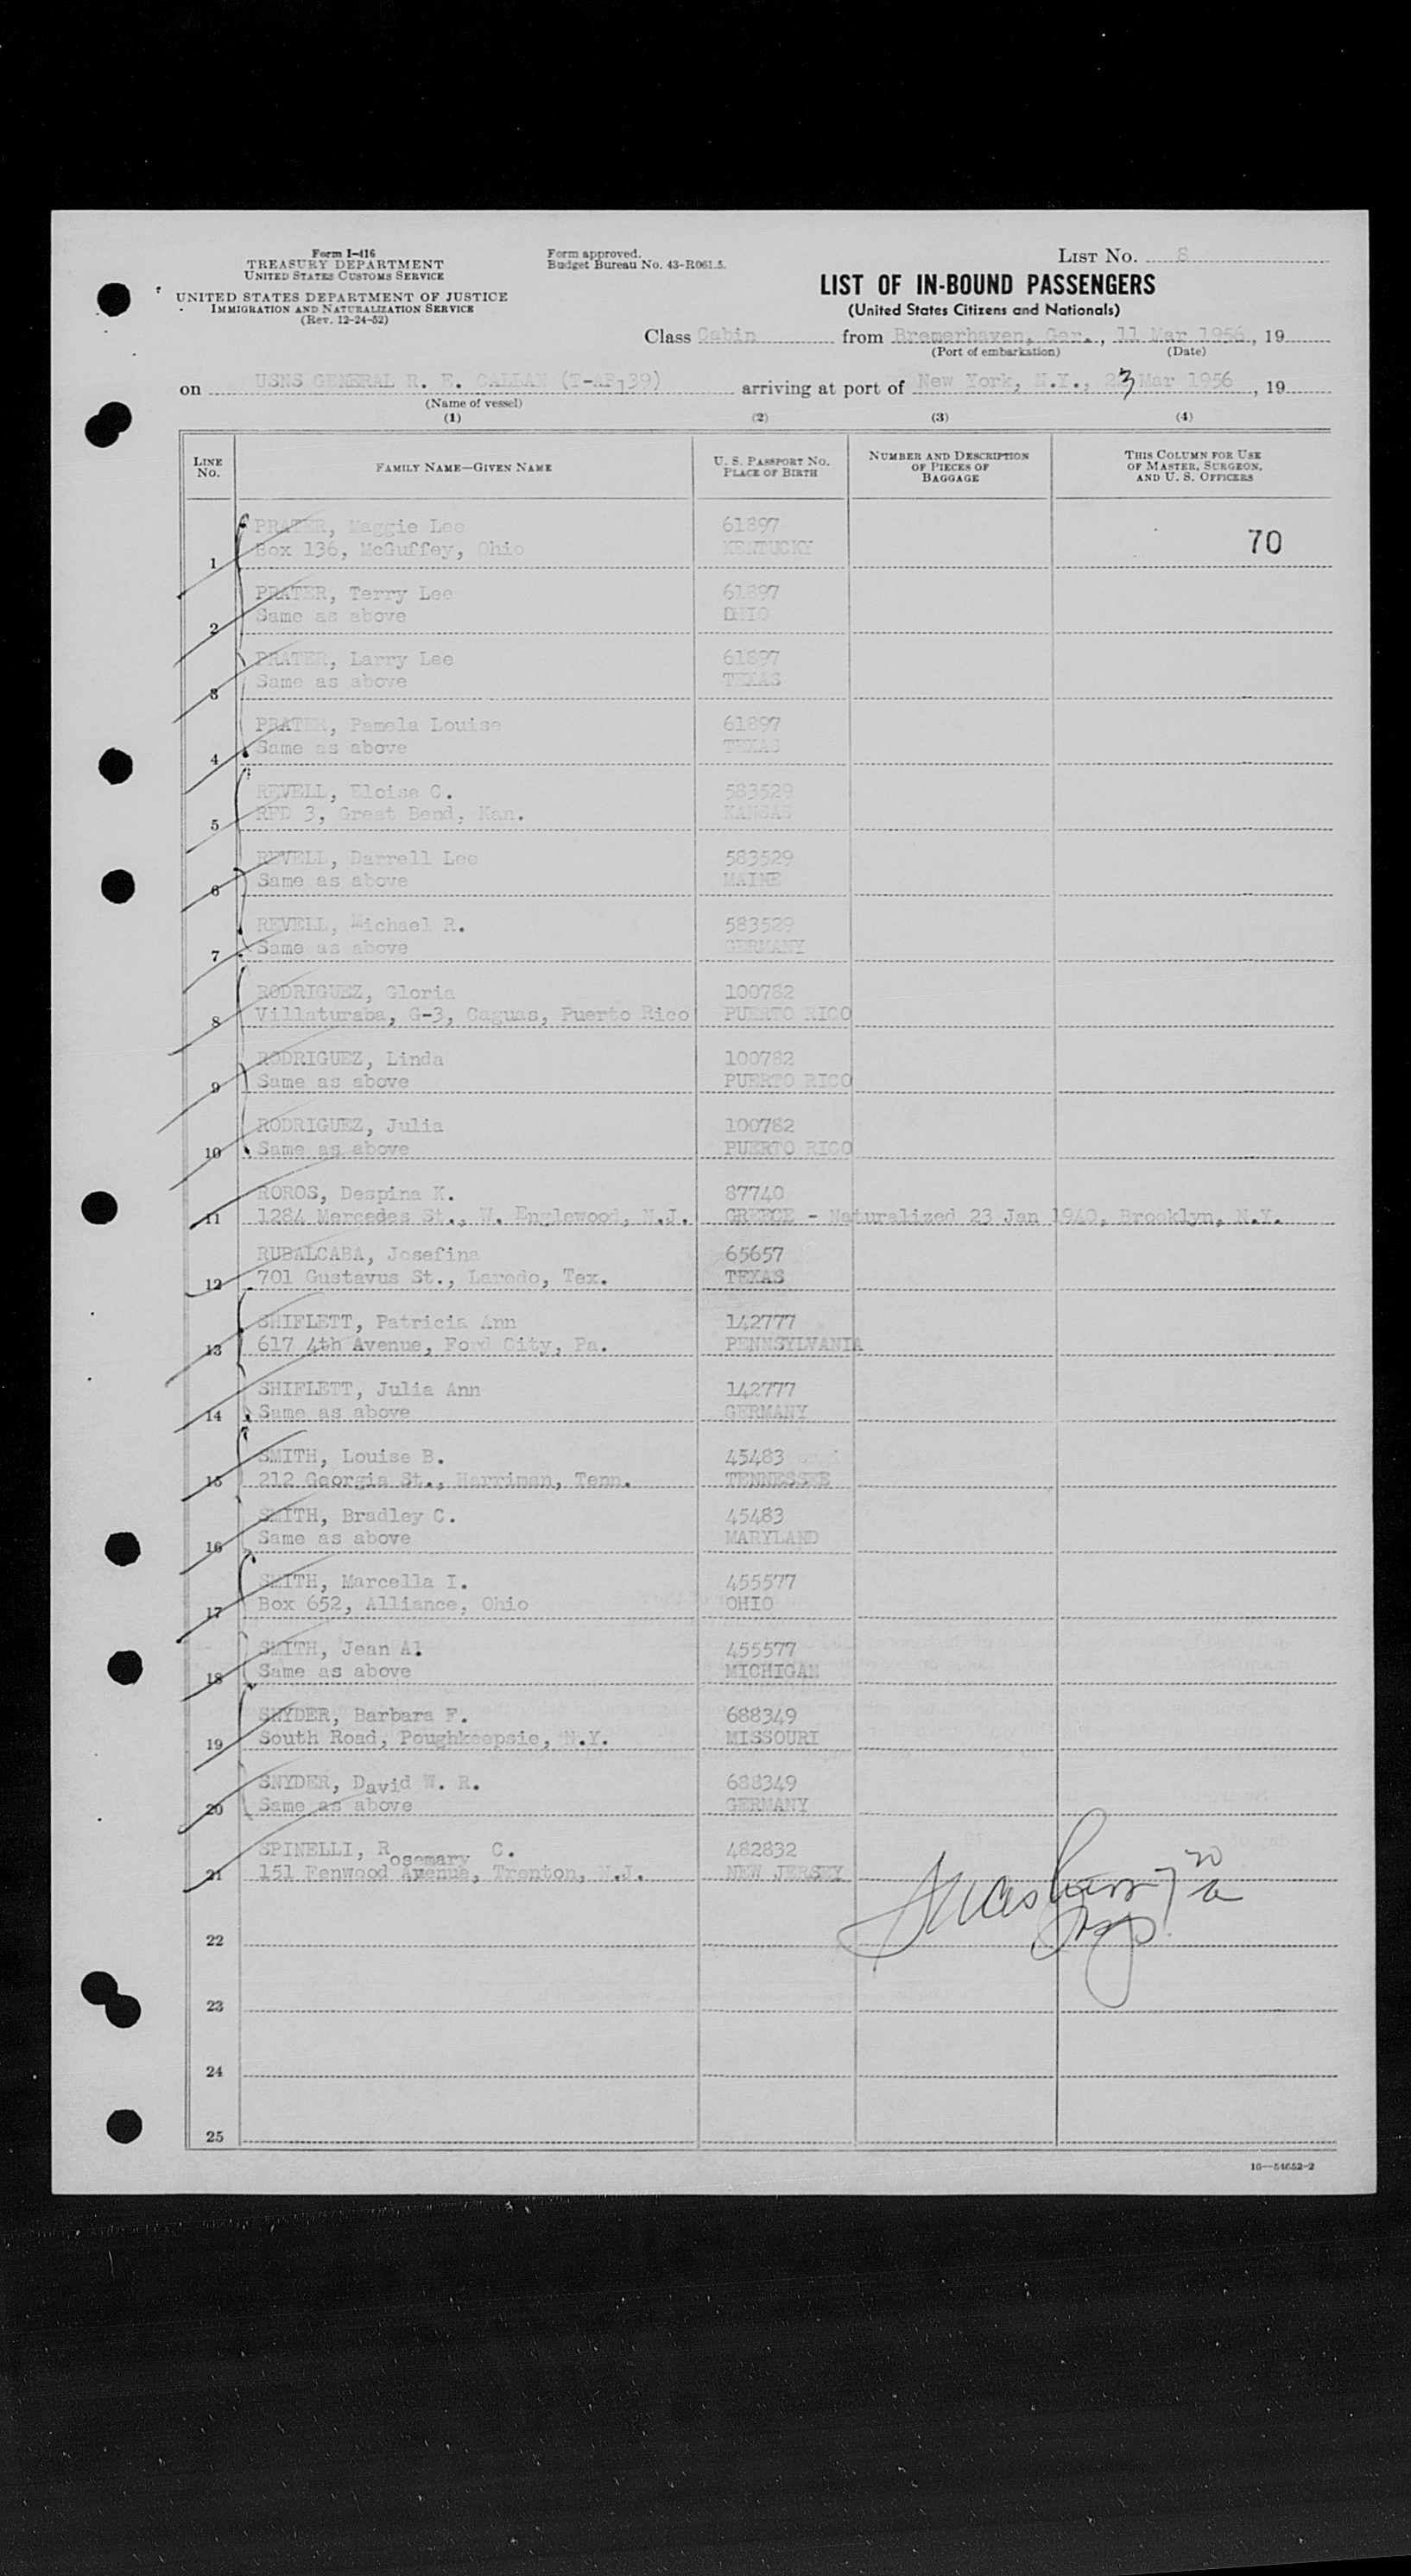 Form I-416
TREASURY DEPARTMENT
UNITED STATES CUSTOMS SERVICE
UNITED STATES DEPARTMENT OF JUSTICE
IMMIGRATION AND NATURALIZATION SERVICE
(Rev. 12-24-52)
Form approved.
Budget Bureau No. 43-R061.5.
LIST No. 8
LIST OF IN-BOUND PASSENGERS
(United States Citizens and Nationals)
Class Cabin from Bremerhaven, Ger., 11 Mar 1956, 19
(Port of embarkation) (Date)
on USNS GENERAL R. E. CALLAN (T-AP139) arriving at port of New York, N.Y., 23 Mar 1956, 19
(Name of vessel)
(1) (2) (3) (4)
LINE No. FAMILY NAME—GIVEN NAME U. S. PASSPORT No. PLACE OF BIRTH NUMBER AND DESCRIPTION OF PIECES OF BAGGAGE THIS COLUMN FOR USE OF MASTER, SURGEON, AND U. S. OFFICERS
PRATER, Maggie Lee 61897
1 Box 136, McGuffey, Ohio KENTUCKY 70
PRATER, Terry Lee 61897
2 Same as above OHIO
PRATER, Larry Lee 61897
3 Same as above TEXAS
PRATER, Pamela Louise 61897
4 Same as above TEXAS
REVELL, Eloise C. 583529
5 RFD 3, Great Bend, Kan. KANSAS
REVELL, Darrell Lee 583529
6 Same as above MAINE
REVELL, Michael R. 583529
7 Same as above GERMANY
RODRIGUEZ, Gloria 100782
8 Villaturaba, G-3, Caguas, Puerto Rico PUERTO RICO
RODRIGUEZ, Linda 100782
9 Same as above PUERTO RICO
RODRIGUEZ, Julia 100782
10 Same as above PUERTO RICO
ROROS, Despina K. 87740
11 1284 Mercedes St., W. Englewood, N.J. GREECE - Naturalized 23 Jan 1940, Brooklyn, N.Y.
RUBALCABA, Josefina 65657
12 701 Gustavus St., Laredo, Tex. TEXAS
SHIFLETT, Patricia Ann 142777
13 617 4th Avenue, Ford City, Pa. PENNSYLVANIA
SHIFLETT, Julia Ann 142777
14 Same as above GERMANY
SMITH, Louise B. 45483
15 212 Georgia St., Harriman, Tenn. TENNESSEE
SMITH, Bradley C. 45483
16 Same as above MARYLAND
SMITH, Marcella I. 455577
17 Box 652, Alliance, Ohio OHIO
SMITH, Jean Al. 455577
18 Same as above MICHIGAN
SNYDER, Barbara F. 688349
19 South Road, Poughkeepsie, N.Y. MISSOURI
SNYDER, David W. R. 688349
20 Same as above GERMANY
SPINELLI, Rosemary C. 482832
21 151 Fenwood Avenue, Trenton, N.J. NEW JERSEY
22
23
24
25
16—54652-2